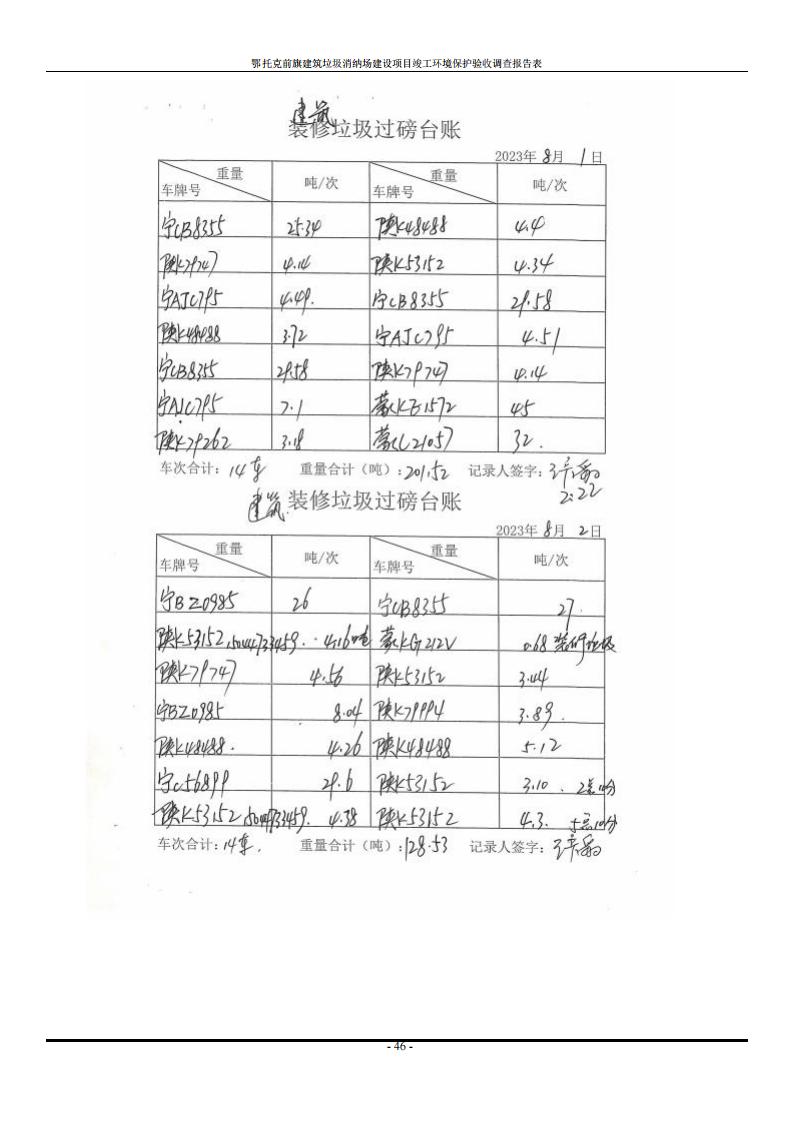 鄂托克前旗建筑垃圾消纳场建设项目竣工环境保护验收调查报告表
建筑
装修垃圾过磅台账
2023年 8月 1日
重量 车牌号 吨/次 重量 车牌号 吨/次
宁CB8355 25.34 陕K48488 4.4
陕K79747 4.14 陕K53152 4.34
宁AJC795 4.49. 宁CB8355 29.58
陕K48488 3.72 宁AJC795 4.51
宁CB8355 29.58 陕K79747 4.14
宁AJC795 7.1 蒙KE1572 45
陕K79262 3.18 蒙CL21057 32.
车次合计：14车 重量合计（吨）：201.52 记录人签字：
2:22
建筑 装修垃圾过磅台账
2023年 8月 2日
重量 车牌号 吨/次 重量 车牌号 吨/次
宁BZ0985 26 宁CB8355 27.
陕K53152 15044733459. 4.16吨 蒙KG212V 0.68 装修垃圾
陕K79747 4.56 陕K53152 3.44
宁BZ0985 8.04 陕K79994 3.89.
陕K48488. 4.26 陕K48488 5.12
宁C56899 29.6 陕K53152 3.10. 2点10分
陕K53152 15044733459. 4.38 陕K53152 4.3. 5点10分
车次合计：14车. 重量合计（吨）：128.53 记录人签字：
- 46 -